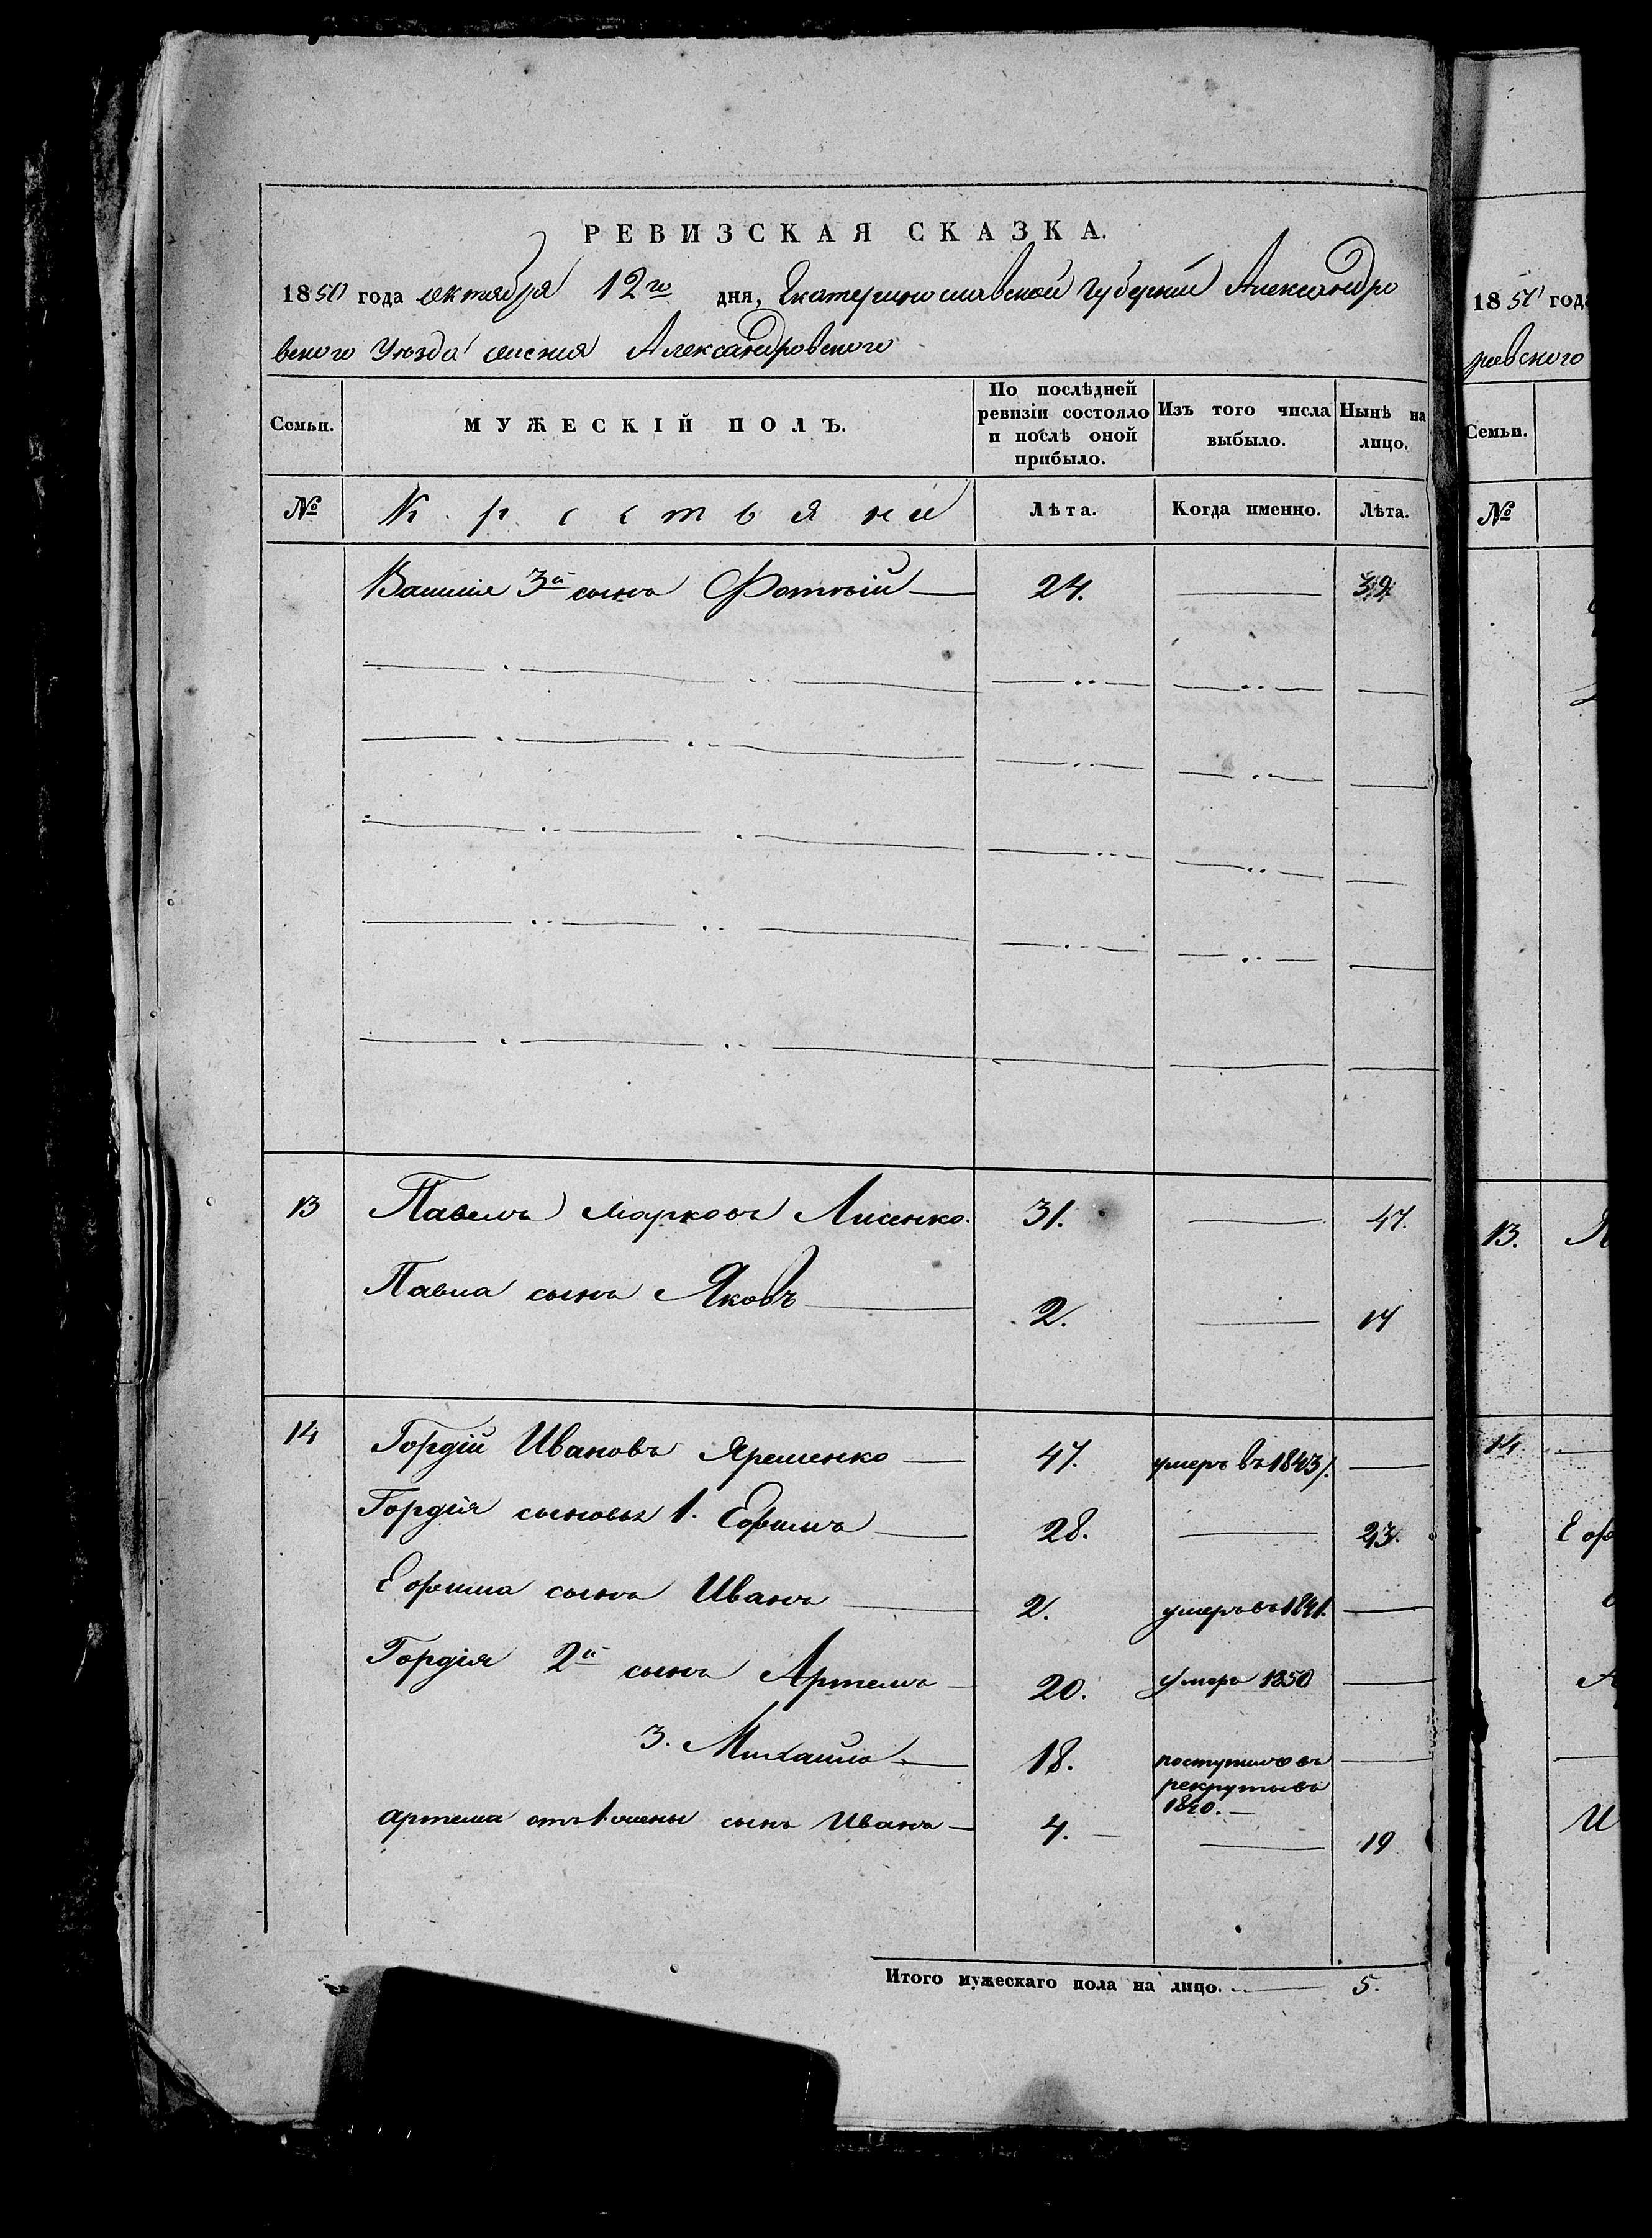 РЕВИЗСКАЯ СКАЗКА.
1850 года октября 12го дня, Екатеринославской Губернии Александро
вского Уезда имения Александровского
Семьи.
МУЖЕСКІЙ ПОЛЪ.
По послѣдней ревизіи состояло и послѣ оной прибыло.
Изъ того числа выбыло.
Нынѣ на лицо.
№ Крестьяне Лѣта. Когда именно. Лѣта.
Василия 3й сынъ Фотѣій 24.
13 Павелъ Марковъ Лисенко. 31. 47.
Павла сынъ Яковъ 2.
14 Гордій Ивановъ Ярешенко 47. умеръ въ 1843
Гордія сыновья 1. Ефимъ 28.
Ефима сынъ Иванъ 2. умеръ въ 1841.
Гордія 2й сынъ Артемъ 20. умеръ 1850
3. Михайло 18. поступилъ въ
рекруты въ
1840.
Артема отъ 1 жены сынъ Иванъ 4. 19
Итого мужескаго пола на лицо. 5.
1850 года
ровского
Семьи.
№
13.
14
Ефи